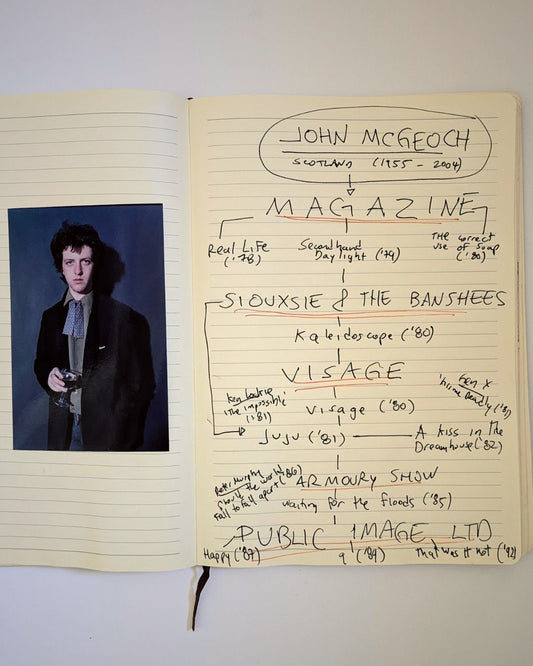 JOHN MCGEOCH
SCOTLAND (1955 - 2004)
MAGAZINE
Real Life
('78)
Secondhand
Daylight ('79)
THE correct
use of soap
('80)
SIOUXSIE & THE BANSHEES
Kaleidoscope ('80)
VISAGE
Gen X
'Kiss me Deadly' ('81)
Visage ('80)
'The impossible'
('81)
JuJu ('81)
A kiss in The
Dreamhouse ('82)
Peter Murphy
Should the world
Fail to fall apart ('86)
ARMOURY SHOW
Waiting for the floods ('85)
PUBLIC IMAGE LTD
Happy ('87)
9 ('89)
That was It not ('92)